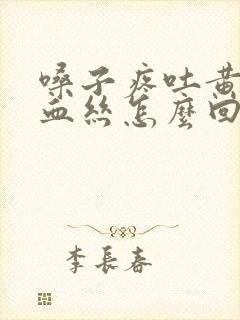 嗓子疼吐黄
血丝怎麼回
李長春